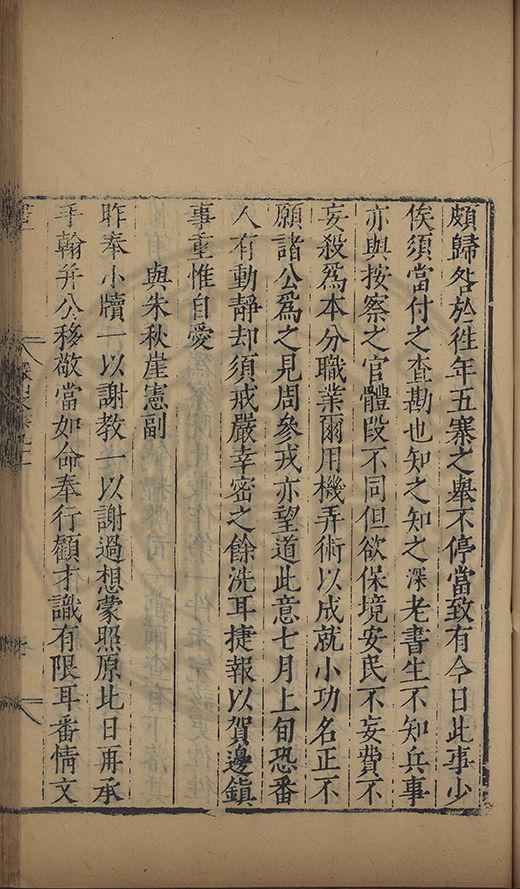 頗歸咎於徃年五寨之舉不停當致有今日此事少
俟須當付之查勘也知之知之深老書生不知兵事
亦與按察之官體段不同但欲保境安民不妄費不
妄殺爲本分職業爾用機弄術以成就小功名正不
願諸公爲之見周參戎亦望道此意七月上旬恐番
人有動靜却須戒嚴幸密之餘洗耳捷報以賀邊鎭
事重惟自愛
與朱秋崖憲副
昨奉小牘一以謝教一以謝過想蒙照原比日再承
手翰幷公移敬當如命奉行顧才識有限耳番情文